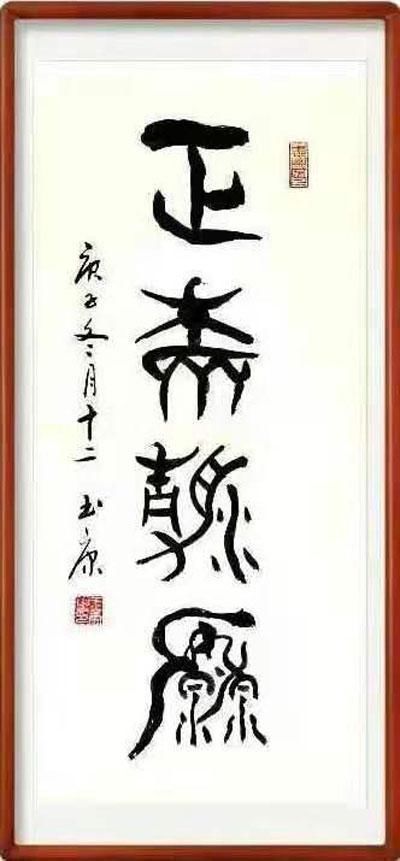 正本清源
庚子冬月十二 玉康